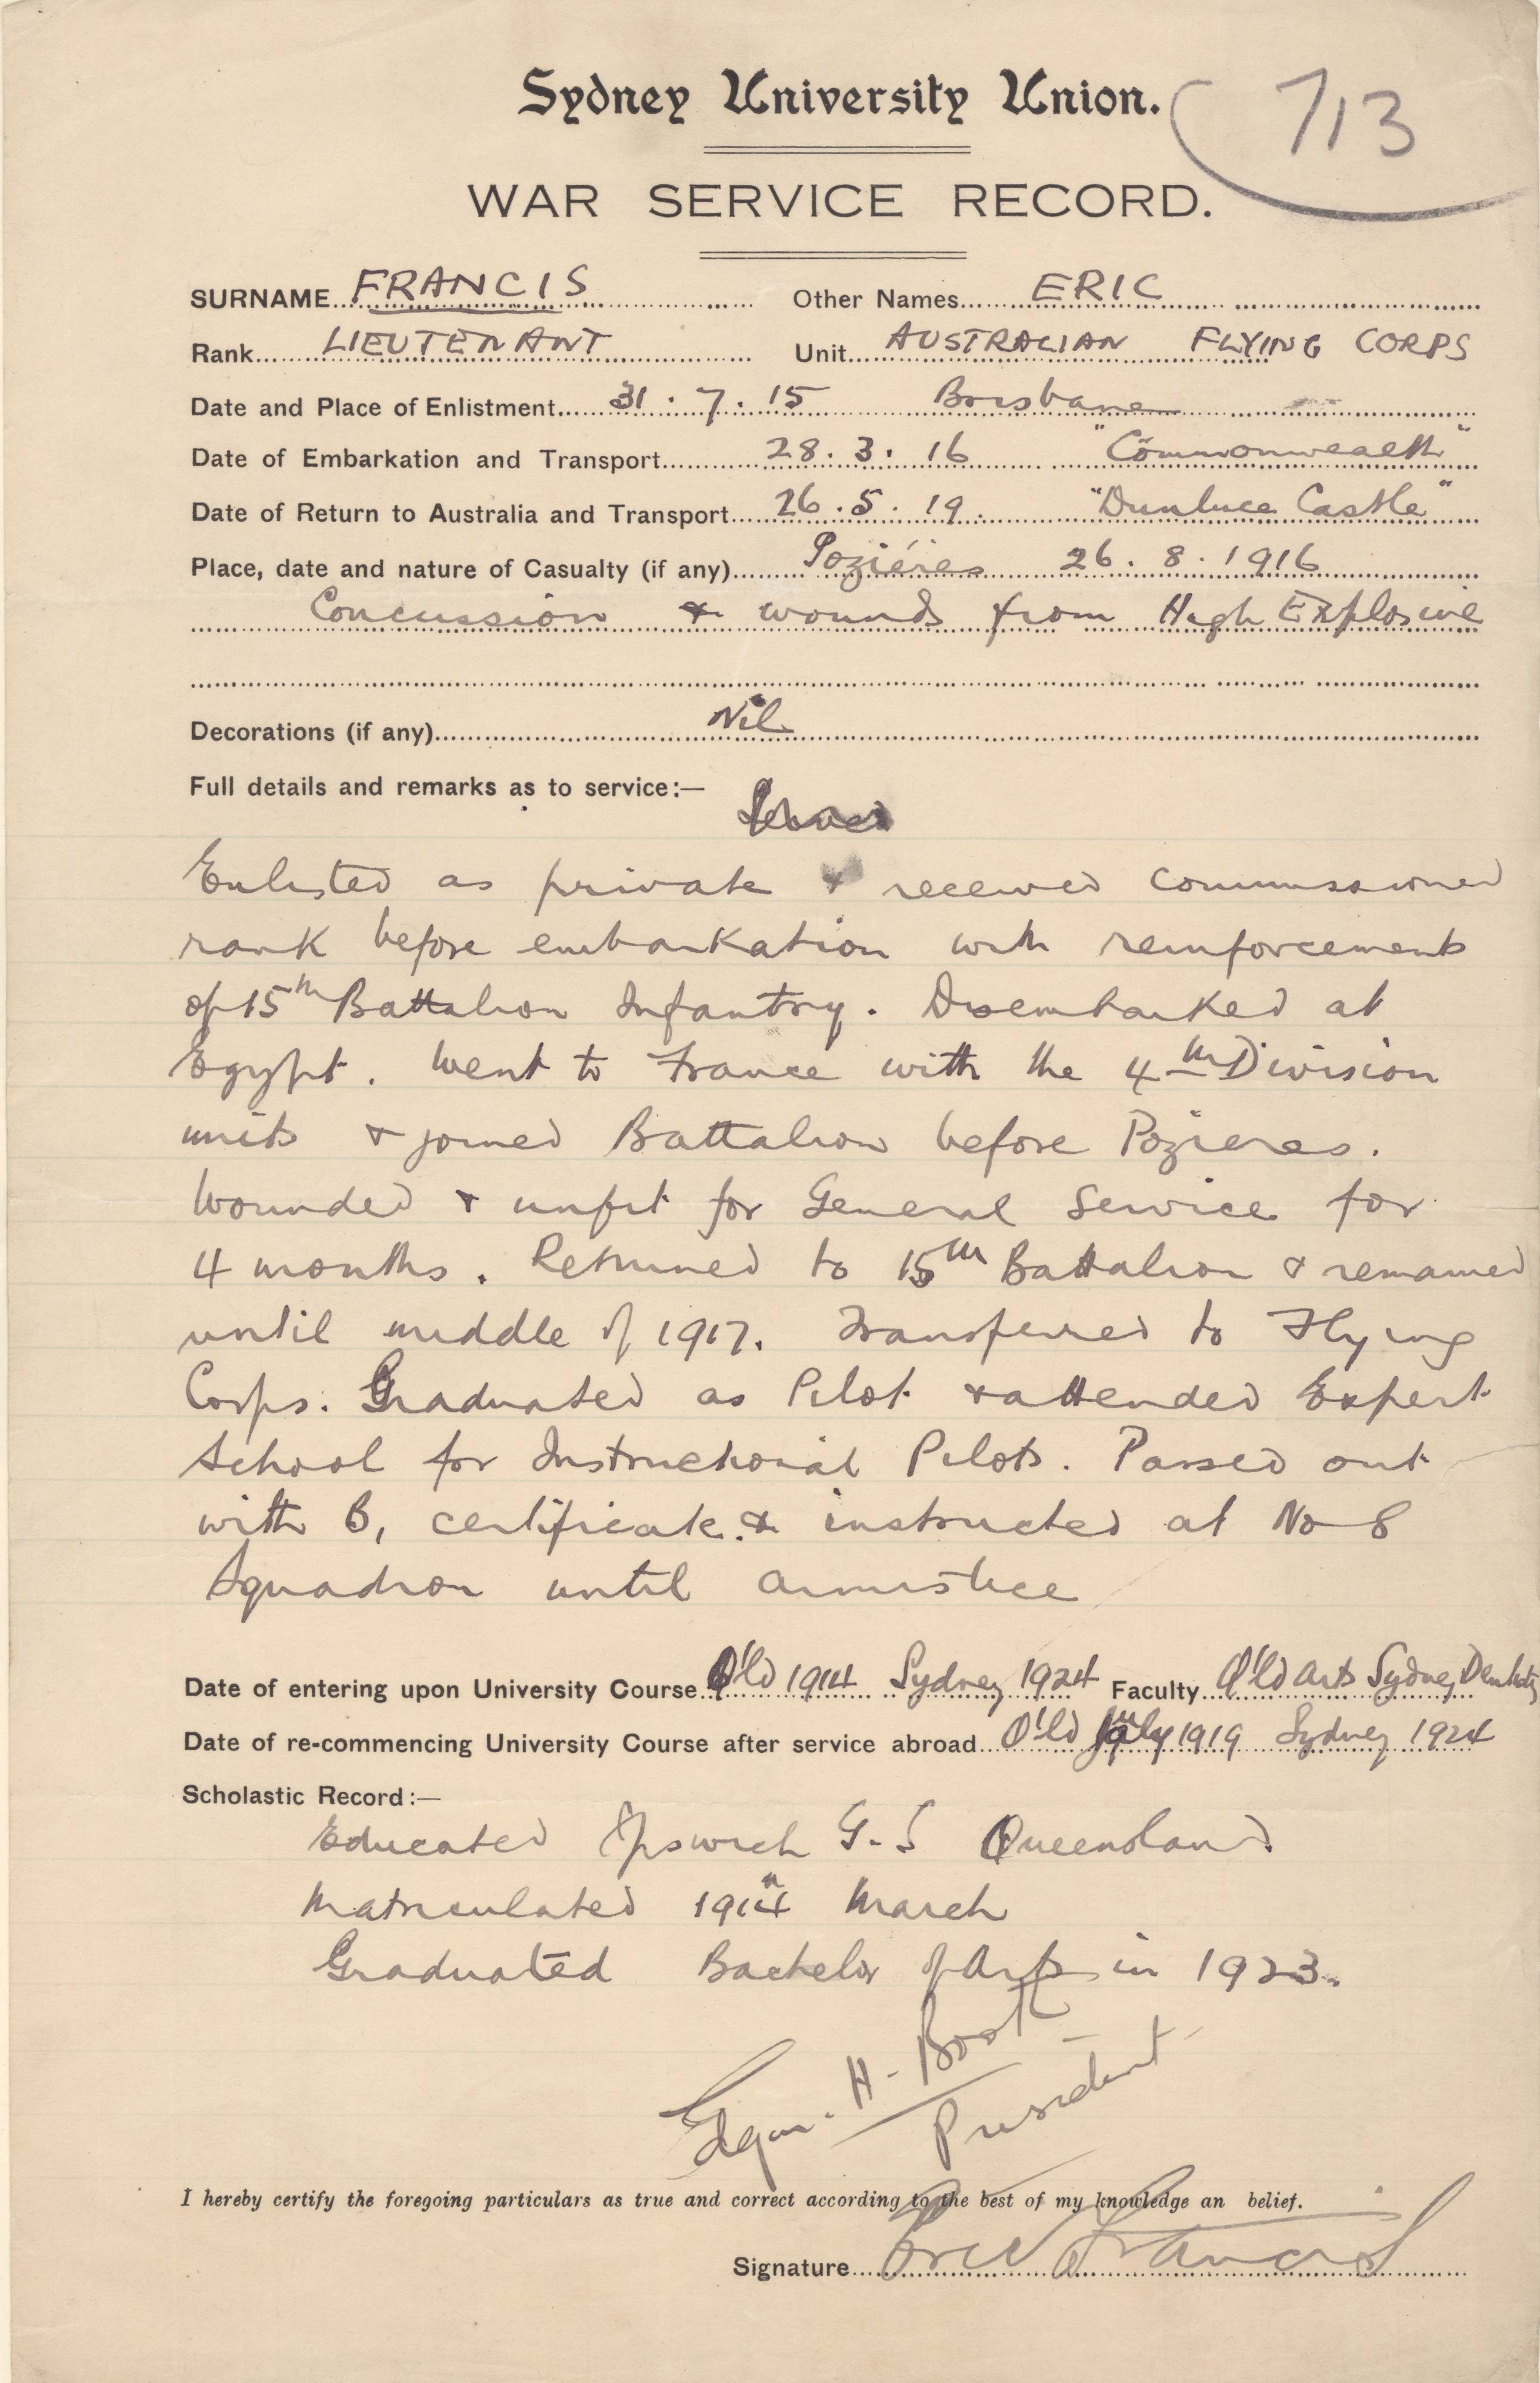 Sydney University Union.
713
WAR SERVICE RECORD.
SURNAME FRANCIS Other Names ERIC
Rank LIEUTENANT Unit AUSTRALIAN FLYING CORPS
Date and Place of Enlistment 31.7.15 Brisbane
Date of Embarkation and Transport 28.3.16 "Commonwealth"
Date of Return to Australia and Transport 26.5.19. "Dunluce Castle"
Place, date and nature of Casualty (if any) Pozières 26.8.1916
Concussion & wounds from High Explosive
Decorations (if any) Nil
Full details and remarks as to service:—
Enlisted as private & received commissioned
rank before embarkation with reinforcements
of 15th Battalion Infantry. Disembarked at
Egypt. Went to France with the 4th Division
units & joined Battalion before Pozieres.
Wounded & unfit for General Service for
4 months. Returned to 15th Battalion & remained
until middle of 1917. Transferred to Flying
Corps. Graduated as Pilot & attended Expert
School for Instructional Pilots. Passed out
with B, certificate. & instructed at No 8
Squadron until armistice
Date of entering upon University Course Q'ld 1914 Sydney 1924 Faculty Q'ld Arts Sydney Dentistry
Date of re-commencing University Course after service abroad Q'ld July 1919 Sydney 1924
Scholastic Record:—
Educated Ipswich G.S Queensland.
Matriculated 1914 March
Graduated Bachelor of Arts in 1923.
Edgar. H. Booth
President
I hereby certify the foregoing particulars as true and correct according to the best of my knowledge an belief.
Signature Eric Francis